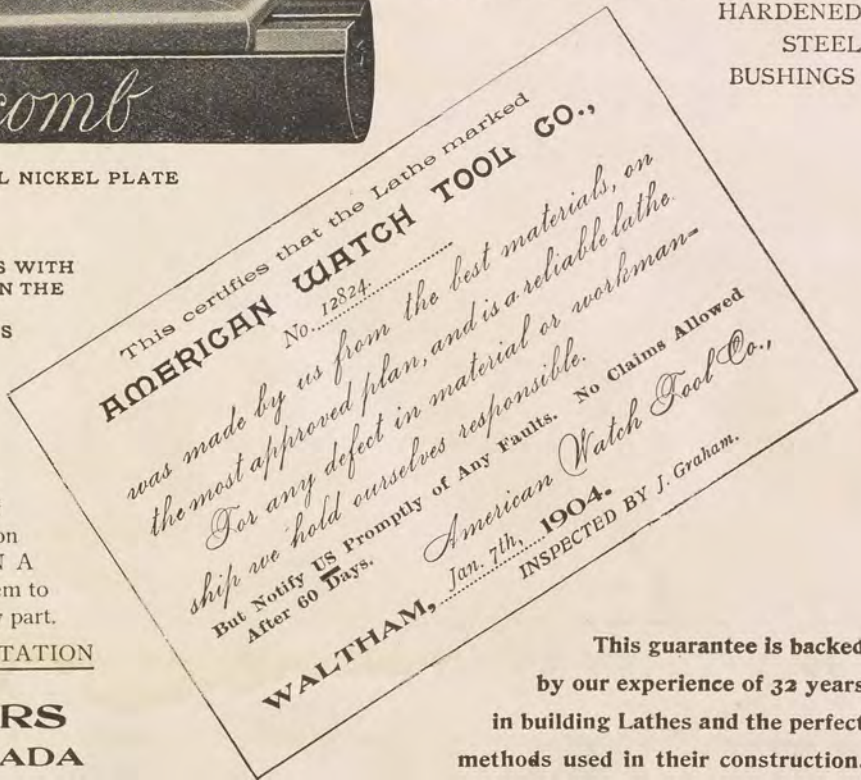 HARDENED
STEEL
BUSHINGS
comb
L NICKEL PLATE
S WITH
N THE
S
on
N A
em to
part.
TATION
RS
ADA
This certifies that the Lathe marked
AMERICAN WATCH TOOL CO.,
No. 12824.
was made by us from the best materials, on
the most approved plan, and is a reliable lathe.
For any defect in material or workman-
ship we hold ourselves responsible.
But Notify US Promptly of Any Faults. No Claims Allowed
After 60 Days.
American Watch Tool Co.,
WALTHAM, Jan. 7th, 1904.
INSPECTED BY J. Graham.
This guarantee is backed
by our experience of 32 years
in building Lathes and the perfect
methods used in their construction.